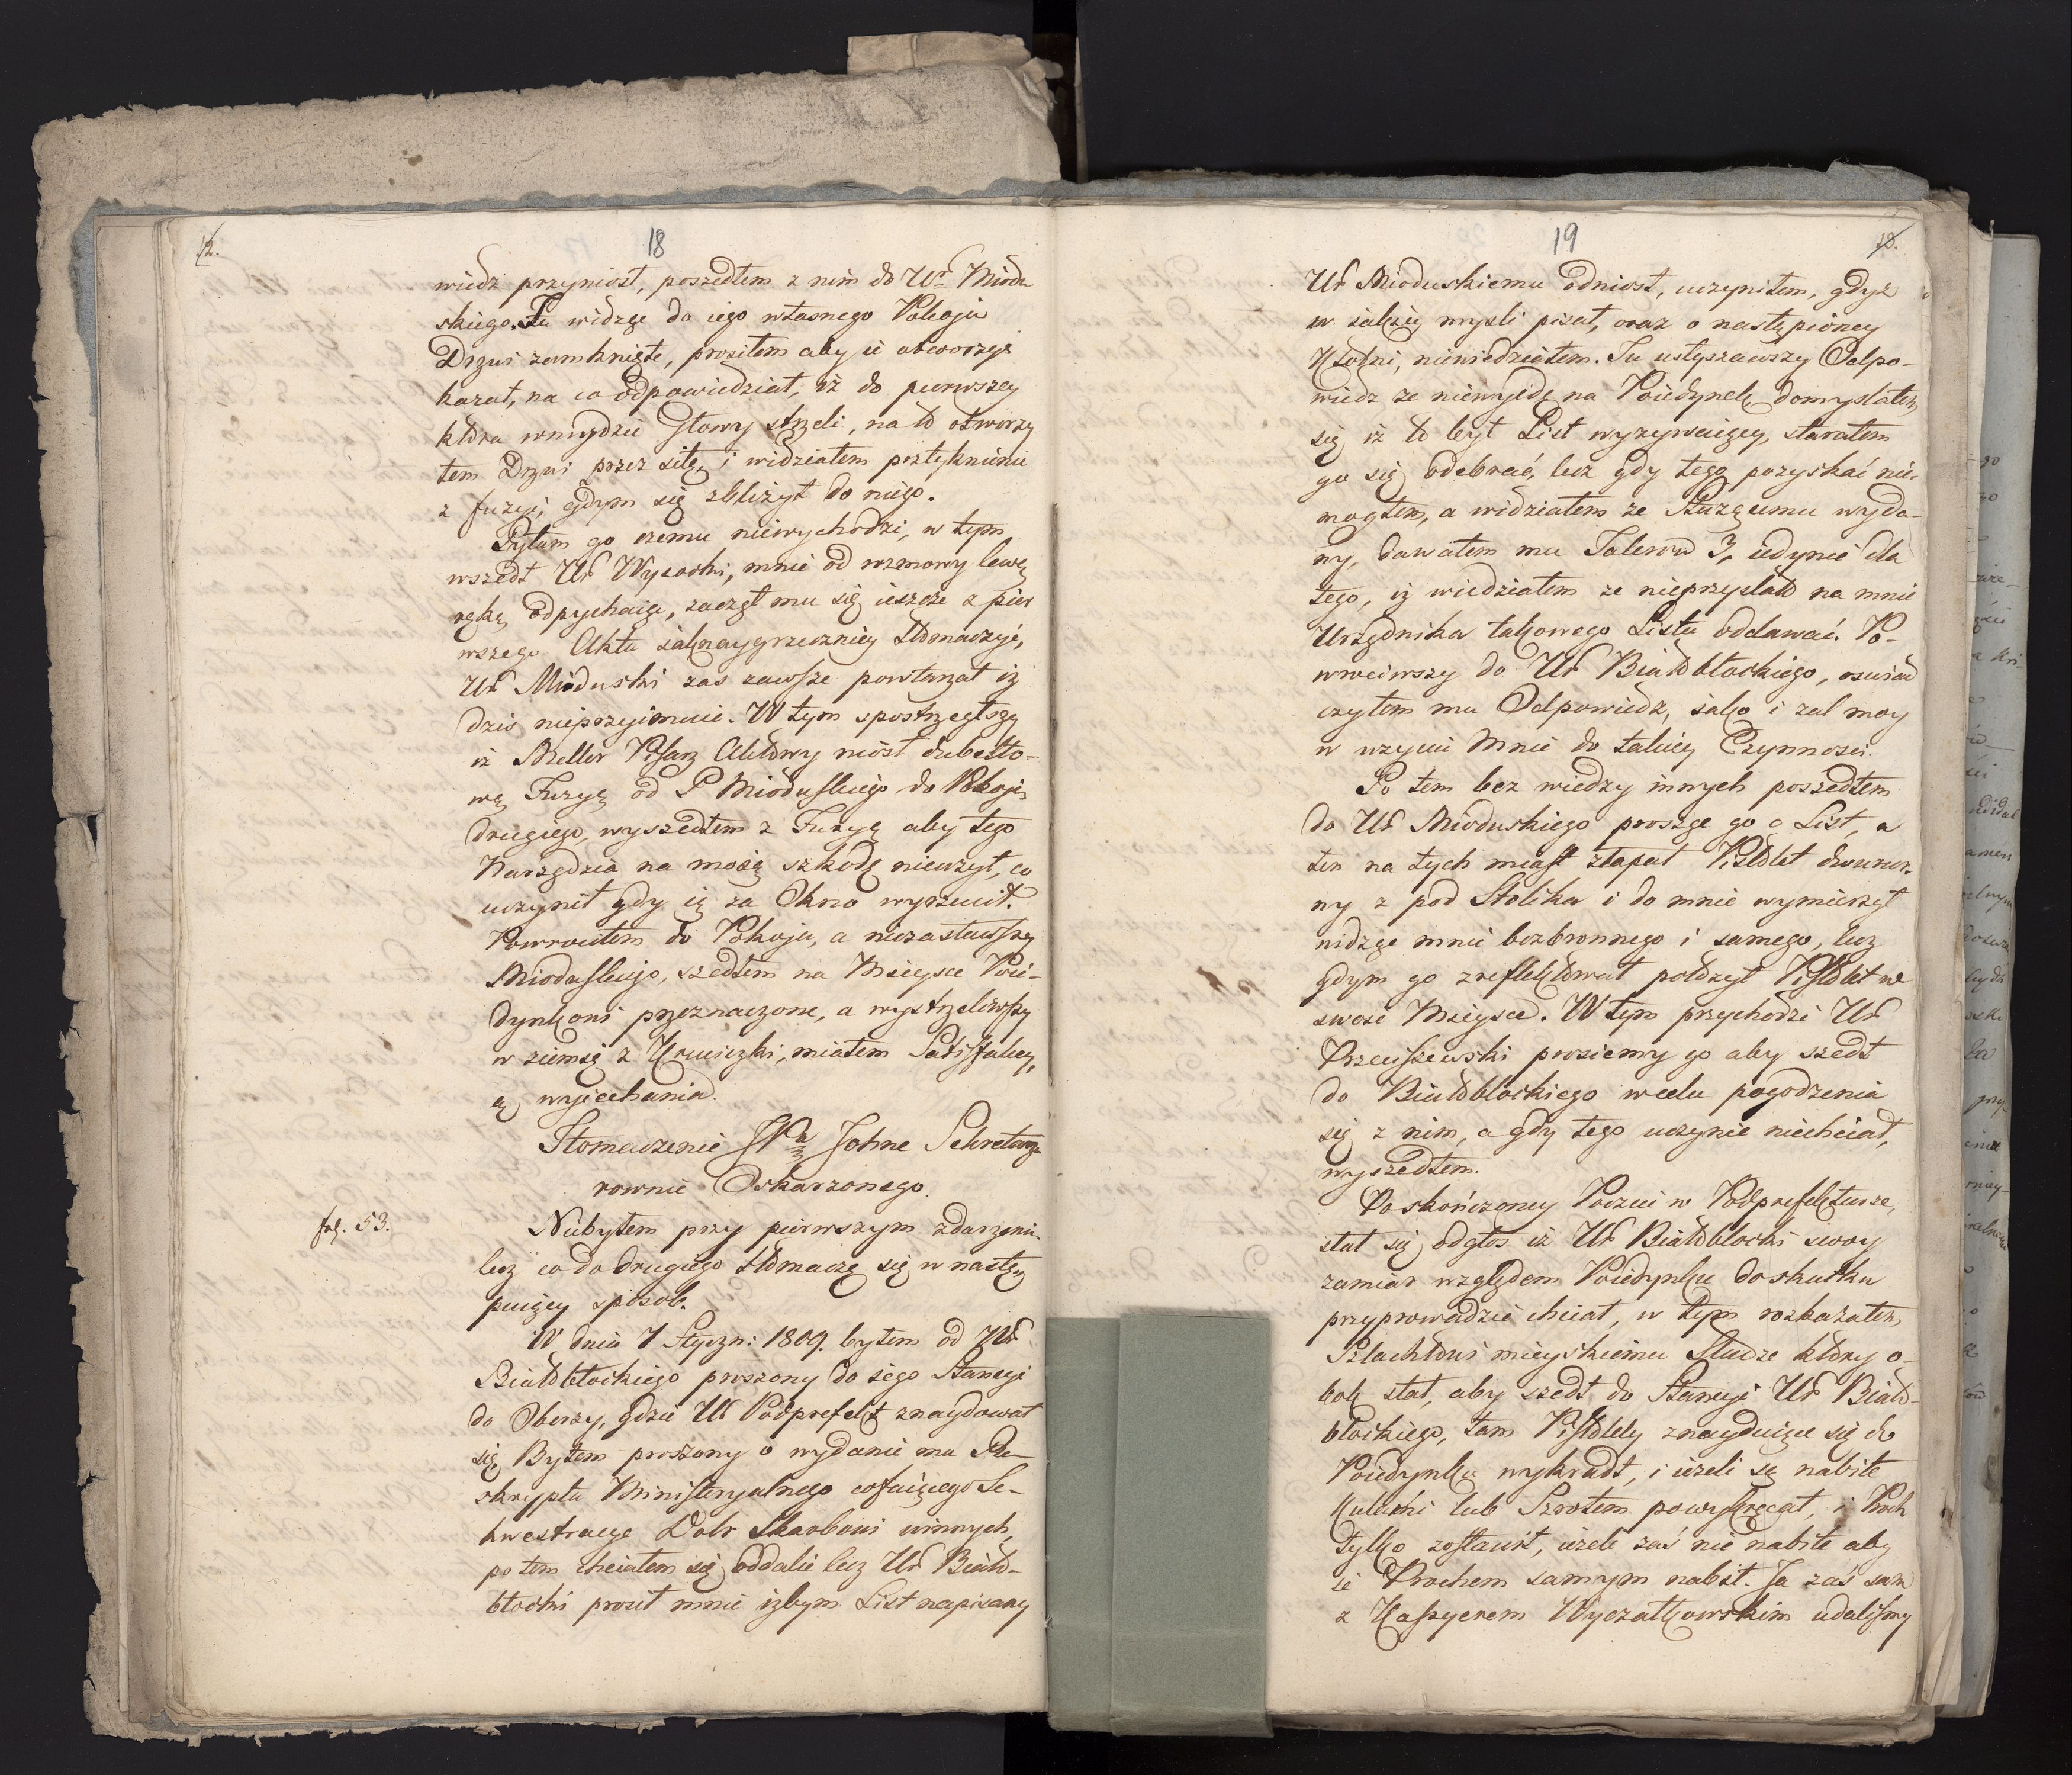 12.
18
wiedź przyniosł, poszedłem z nim do Ur Miodu
skiego. Tu widząc do iego własnego Pokoju
Drzwi zamknięte, prosiłem aby ie otworzyć
kazał, na co odpowiedział, iż do pierwszey
która wnuydzie Głowy strzeli, na to otworzy
łem Drzwi przez siłę, i widziałem
z fuzyi gdym się zbliżył do niego.
Pytam go czemu niewychodzi, w tym
wszedł Ur Wysocki, mnie od rozmowy lewą
ręką odpychaiąc, zaczął mu się ieszcze z pier
wszego Aktu iaknaygrzeczniey tłomaczyć,
Ur Mioduski zas zawsze powtarzał iż
dziś nieprzyimuie. W tym spostrzegłszy
iż Meller Pisarz Aktowy niósł dubelto-
wą Fuzyą od P Mioduskiego do Pokoju
drugiego, wyszedłem z Fuzyą aby tego
Narzędzia na moią szkodę nieużył, co
uczynił gdy ią za Okno wyrzucił.
Powrociłem do Pokoju, a niezastawszy
Mioduskiego, szedłem na Mieysce Poie-
dynkowi przeznaczone, a wystrzeliwszy
w ziemię z Krucizki, miałem Satisfakcy,
ą wyiechania.
Tłomaczenie JPa Johne Sekretarza
rownie Oskarzonego.
fol. 53.
Niebyłem przy pierwszym zdarzeniu
lecz co do drugiego tłómaczę się w nastę-
puiący sposob.
W dniu 7 Styczn: 1809. byłem od Ur
Białobłockiego proszony do iego Stancyi
do Oberzy, gdzie Ur Podprefekt znaydował
się. Byłem proszony o wydanie mu Re-
skryptu Ministeryalnego cofaiącego Se-
kwestracye Dobr Skarbowi winnych,
po tem chciałem się oddalić lecz Ur Biało-
błocki prosił mnie iżbym List napisany
19
13.
Ur Mioduskiemu odniosł, uczyniłem, gdyż
w iakiey mysli pisał, oraz o nastąpioney
Kłótni, niewiedziałem. Tu usłyszawszy Odpo-
wiedz ze niewyidę na Poiedynek domyslałem
się iż to był List wyzywaiący, starałem
go się odebrać, lecz gdy tego pozyskać nie-
mogłem, a widziałem ze Służącemu wyda-
ny, dawałem mu Talerów 3, iedynie dla
tego, iż wiedziałem ze nieprzystało na mnie
Urzędnika takowego Listu oddawać. Po-
wrociwszy do Ur Białobłockiego, oswiad
czyłem mu Odpowiedz, iako i zal moy
w uzyciu Mnie do takiey Czynnosci.
Po tem bez wiedzy innych poszedłem
do Ur Mioduskiego prosząc go o List, a
ten na tych miast złapał Pistolet dwurur-
ny z pod Stolika i do mnie wymierzył
widząc mnie bezbronnego i samego, lecz
gdym go zreflektował położył Pistolet w
swoie Mieysce. W tym przychodzi Ur
Przeciszewski prosiemy go aby szedł
do Białobłockiego wcelu pogodzenia
się z nim, a gdy tego uczynić niechciał,
wyszedłem.
Po skończoney Poczcie w Podprefekturze,
stał się odgłos iż Ur Białobłocki swoy
zamiar względem Poiedynku do skutku
przyprowadzić chciał, w tym rozkazałem
Szlachtowi mieyskiemu Słudze który o-
bok stał, aby szedł do Stancyi Ur Biało-
błockiego, tam Pistolety znayduiące się do
Poiedynku wykradł, i iezeli są nabite
Kulami lub Szrotem powykręcał, i Proch
tylko zostawił, iezeli zaś nie nabite aby
ie Prochem samym nabił. Ja zaś sam
z Kassyerem Wyczałkowskim udalismy